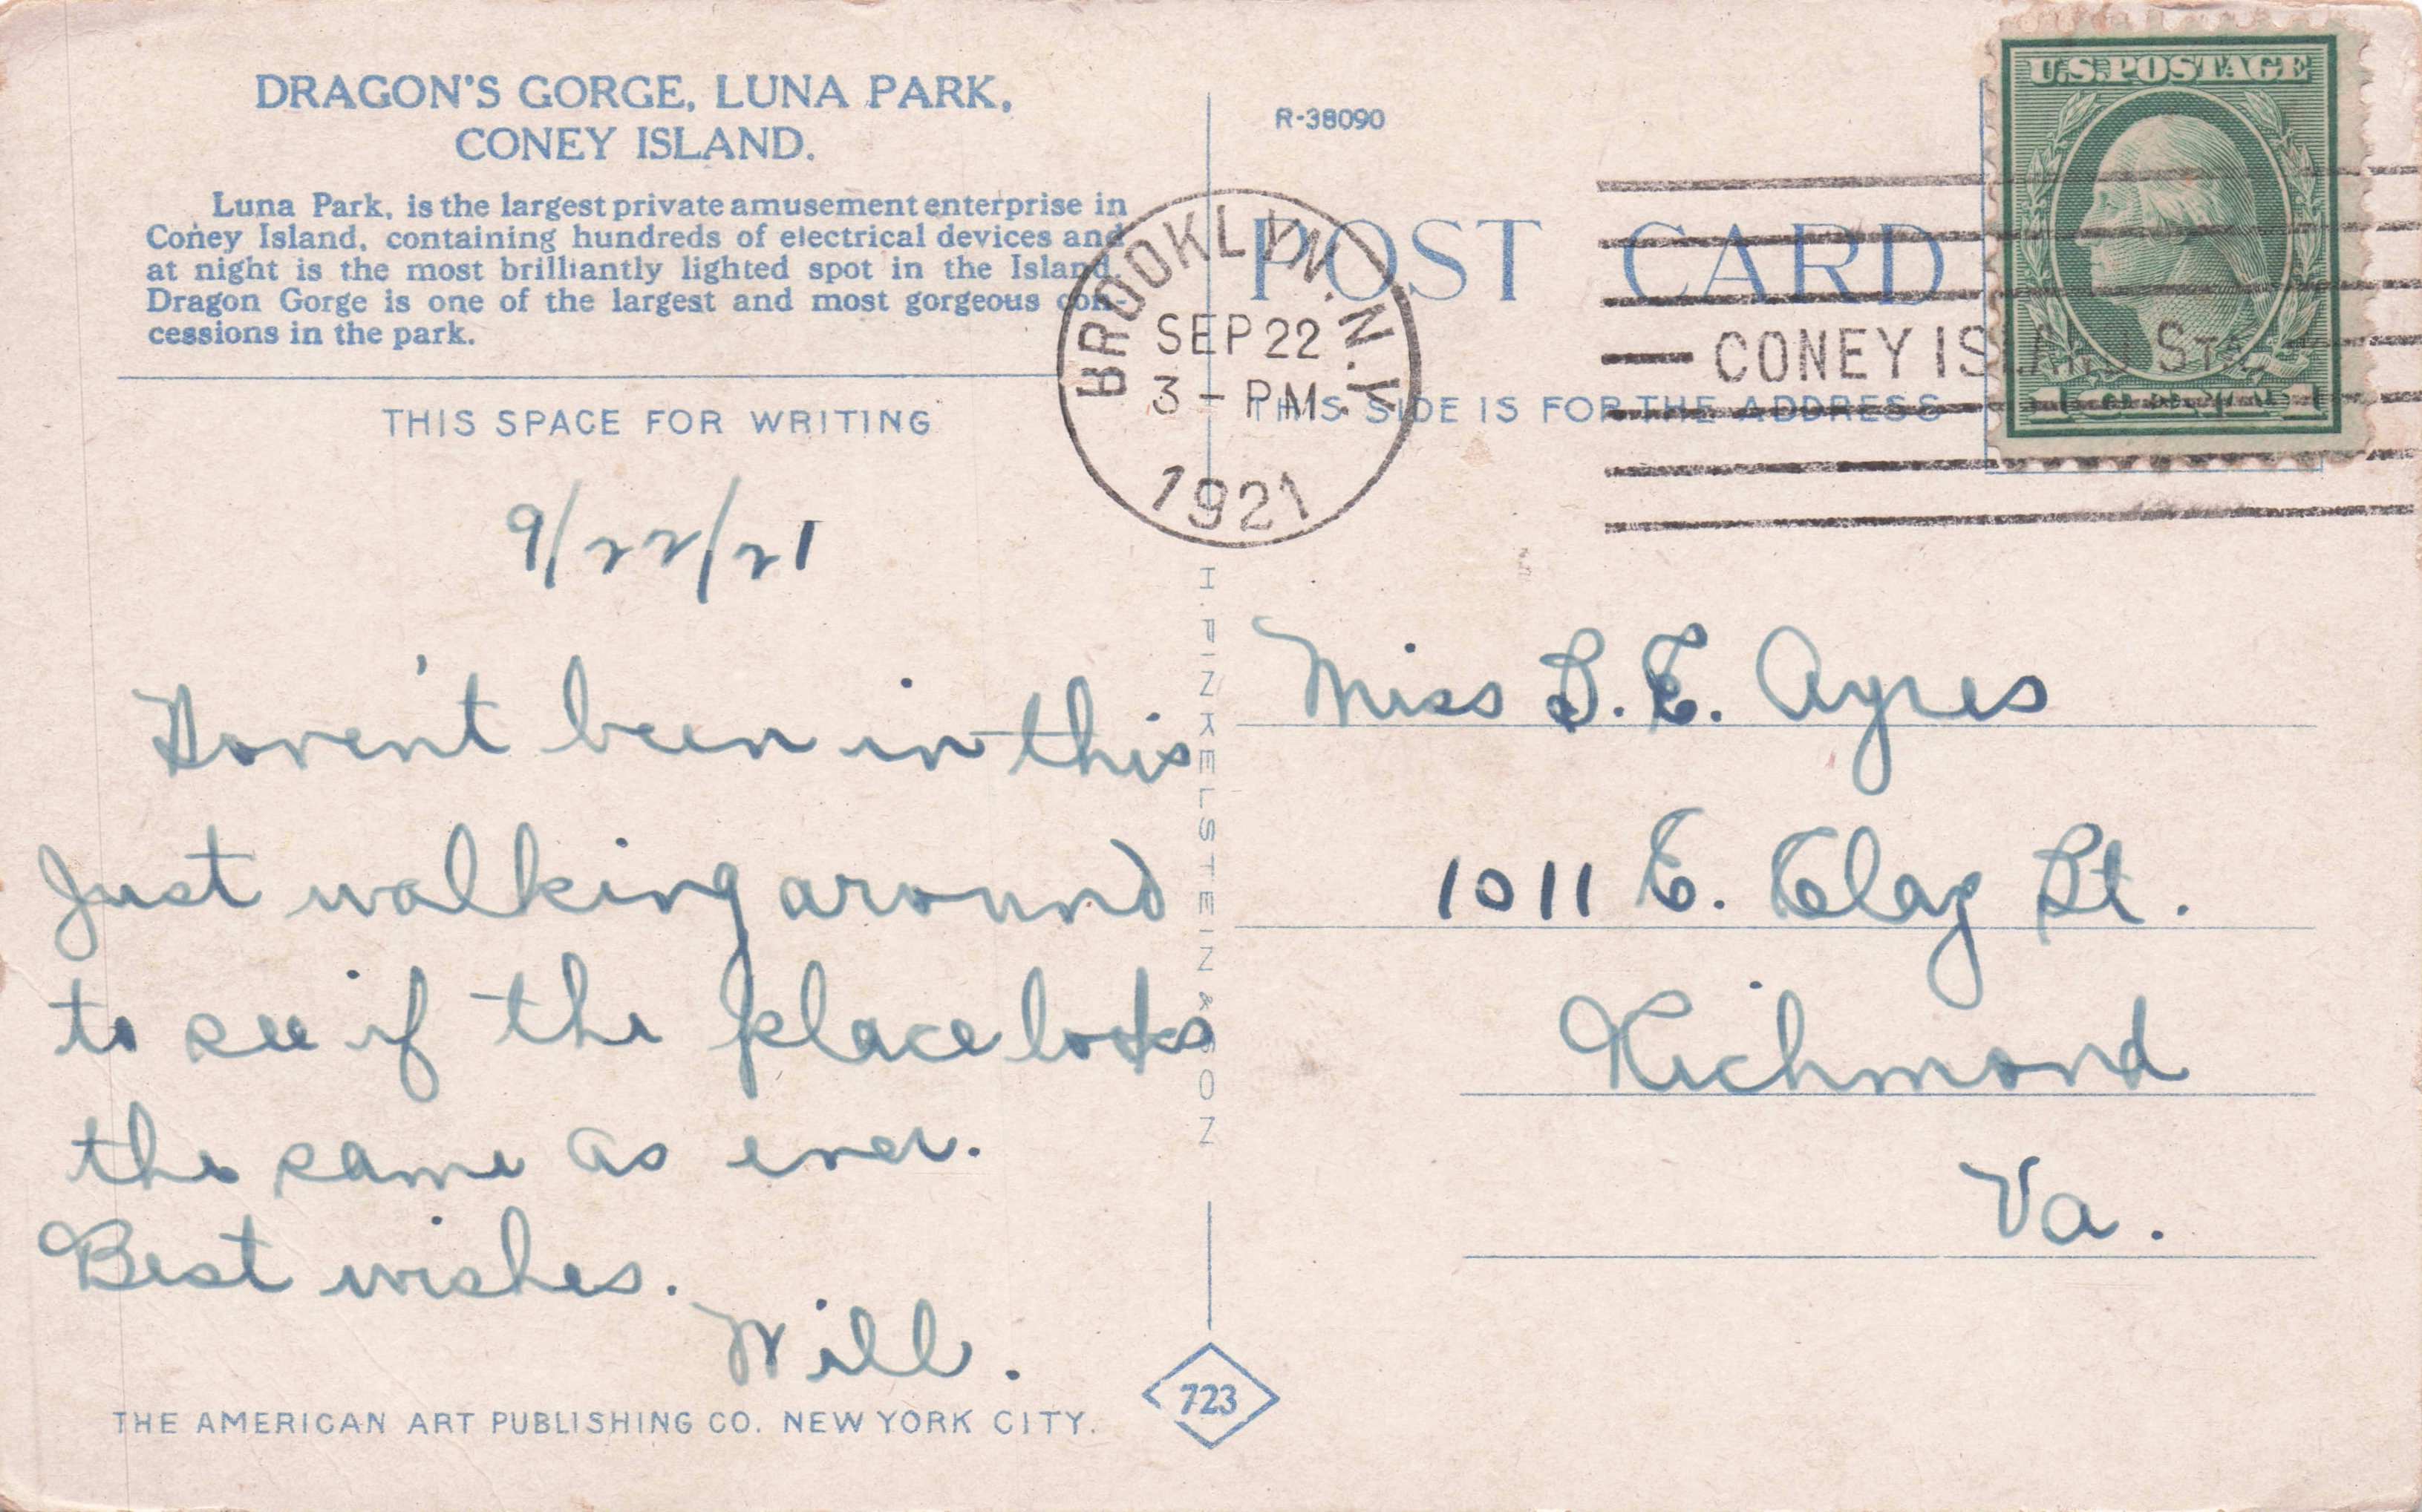 DRAGON'S GORGE, LUNA PARK,
CONEY ISLAND.
Luna Park, is the largest private amusement enterprise in
Coney Island, containing hundreds of electrical devices and
at night is the most brilliantly lighted spot in the Island
Dragon Gorge is one of the largest and most gorgeous con-
cessions in the park.
THIS SPACE FOR WRITING
9/22/21
Haven't been in this
Just walking around
to see if the place looks
the same as ever.
Best wishes.
Will.
THE AMERICAN ART PUBLISHING CO. NEW YORK CITY.
H. FINKELSTEIN & SON
723
R-38090
POST CARD
THIS SIDE IS FOR THE ADDRESS
BROOKLYN, N.Y.
SEP 22
3 - PM
1921
CONEY ISLAND STA.
U.S. POSTAGE
1 CENT 1
Miss S. E. Ayres
1011 E. Clay St.
Richmond
Va.